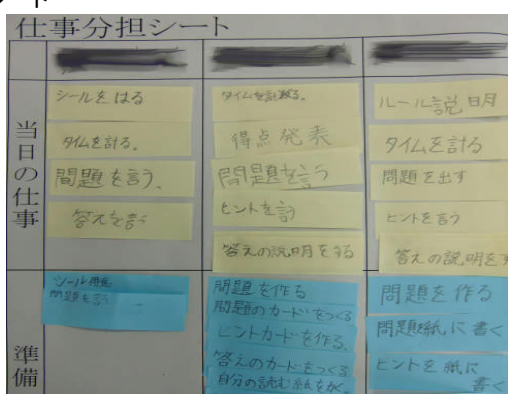 仕事分担シート
当日の仕事
シールをはる
タイムを計る。
問題を言う、
答えを言う
タイムを計る。
得点発表
問題を言う
ヒントを言う
答えの説明をする
ルール説明
タイムを計る
問題を出す
ヒントを言う
答えの説明をす
準備
シール用意
問題を言う
問題を作る
問題のカードをつくる
ヒントカードを作る。
答えのカードをつくる
自分の読む紙をかく。
問題を作る
問題紙に書く
ヒントを紙に
書く